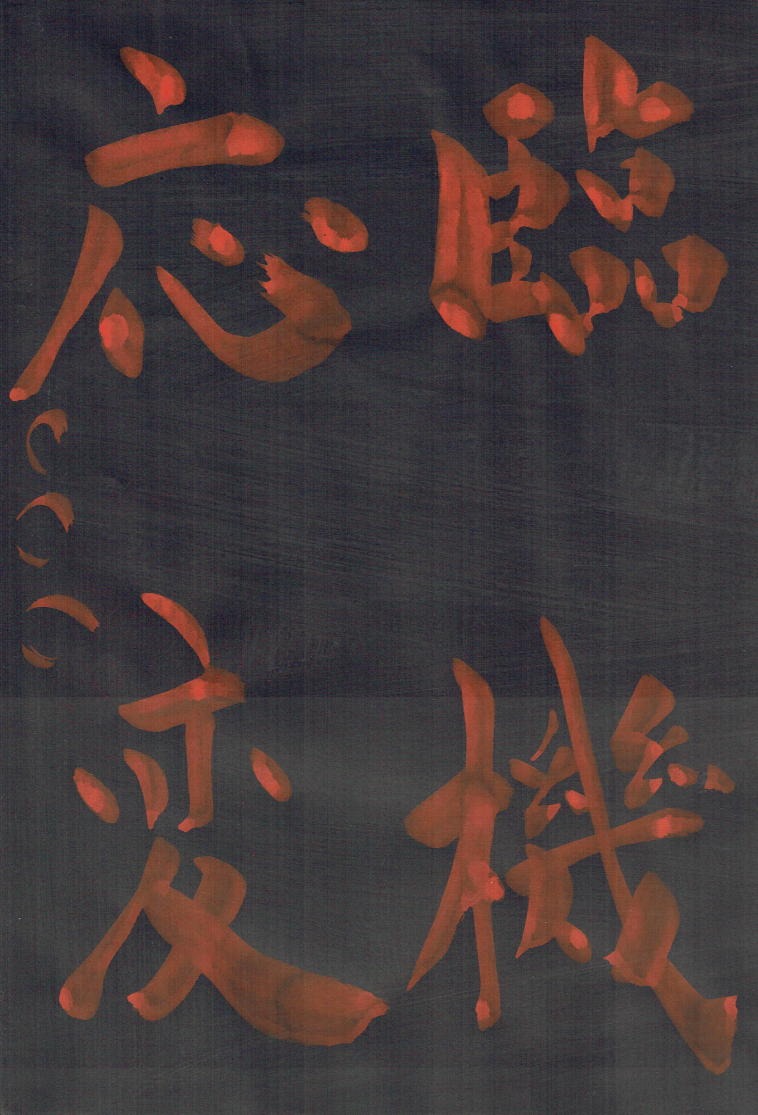 臨機
応変